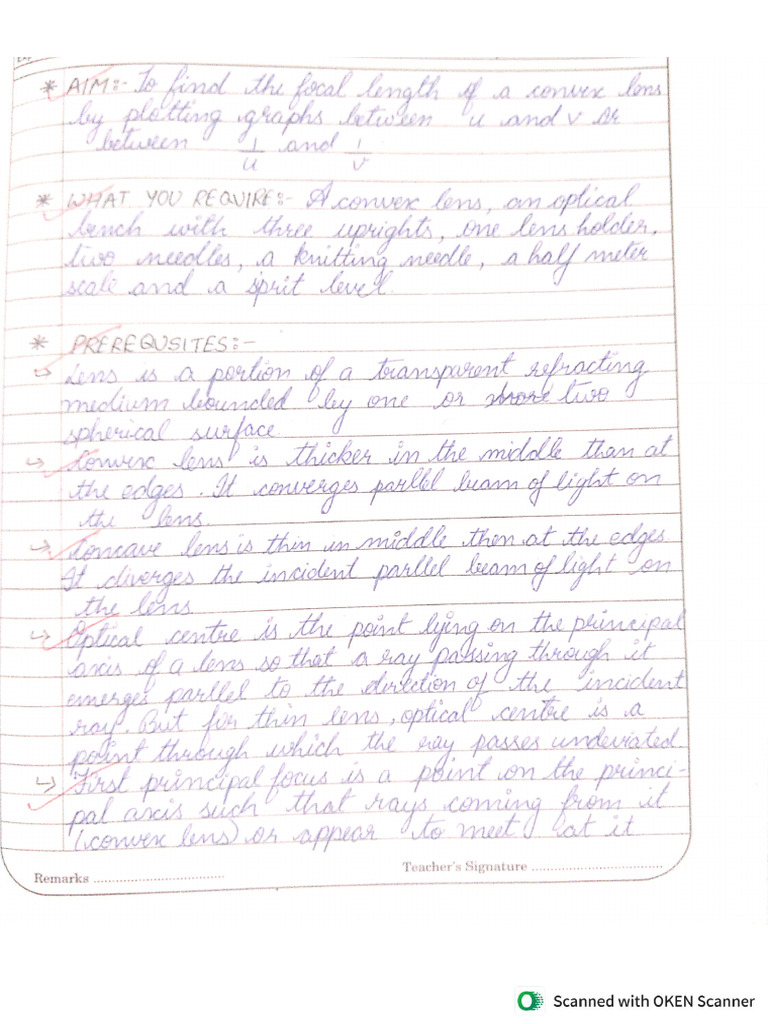 * AIM:- To find the focal length of a convex lens
by plotting graphs between u and v or
between 1/u and 1/v
* WHAT YOU REQUIRE:- A convex lens, an optical
bench with three uprights, one lens holder,
two needles, a knitting needle, a half meter
scale and a sprit level.
* PREREQUSITES:-
↪ Lens is a portion of a transparent refracting
medium bounded by one or two
spherical surface
↪ Convex lens is thicker in the middle than at
the edges. It converges parllel beam of light on
the lens.
↪ Concave lens is thin in middle then at the edges
It diverges the incident parllel beam of light on
the lens
↪ Optical centre is the point lying on the principal
axis of a lens so that a ray passing through it
emerges parllel to the direction of the incident
ray. But for thin lens, optical centre is a
point through which the ray passes undeviated.
↪ First principal focus is a point on the princi-
pal axis such that rays coming from it
(convex lens) or appear to meet at it
Remarks ....................................
Teacher's Signature ....................................
Scanned with OKEN Scanner